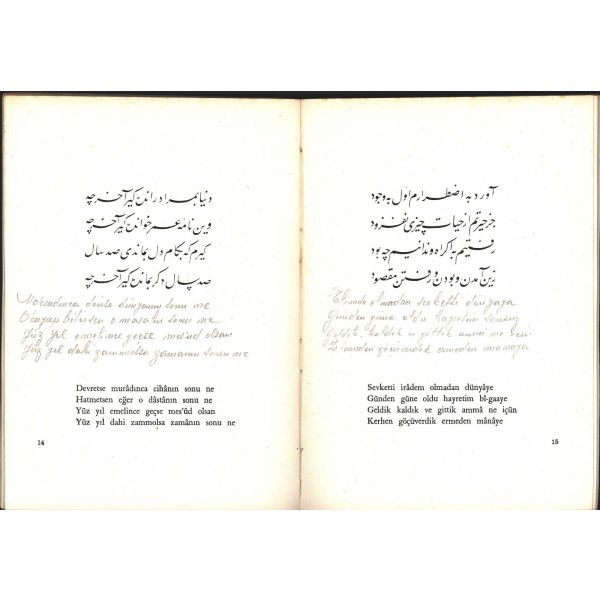 دنیا بمراد رانده گیر آخر چه
وین نامه عمر خوانده گیر آخر چه
گیرم که بکام دل بماندی صد سال
صد سال دگر بمانده گیر آخر چه
Muradınca dönse dünyanın sonu ne
Okuyup bitirsen o masalın sonu ne
Yüz yıl emelince geçse mes'ud olsan
Yüz yıl dahi zammolsa zamanın sonu ne
Devretse murâdınca cihânın sonu ne
Hatmetsen eğer o dâstânın sonu ne
Yüz yıl emelince geçse mes'ûd olsan
Yüz yıl dahi zammolsa zamânın sonu ne
14
آورد به اضطرارم اول به وجود
جز حیرتم از حیات چیزی نفزود
رفتیم به اکراه و ندانیم چه بود
زین آمدن و بودن و رفتن مقصود
Elimde olmadan sevketti dünyaya
Günden güne oldu hayretim
Geldik, kaldık ve gittik amma ne
göçüverdik ermeden manaya
Sevketti irâdem olmadan dünyâye
Günden güne oldu hayretim bî-gaaye
Geldik kaldık ve gittik ammâ ne içün
Kerhen göçüverdik ermeden mânâye
15